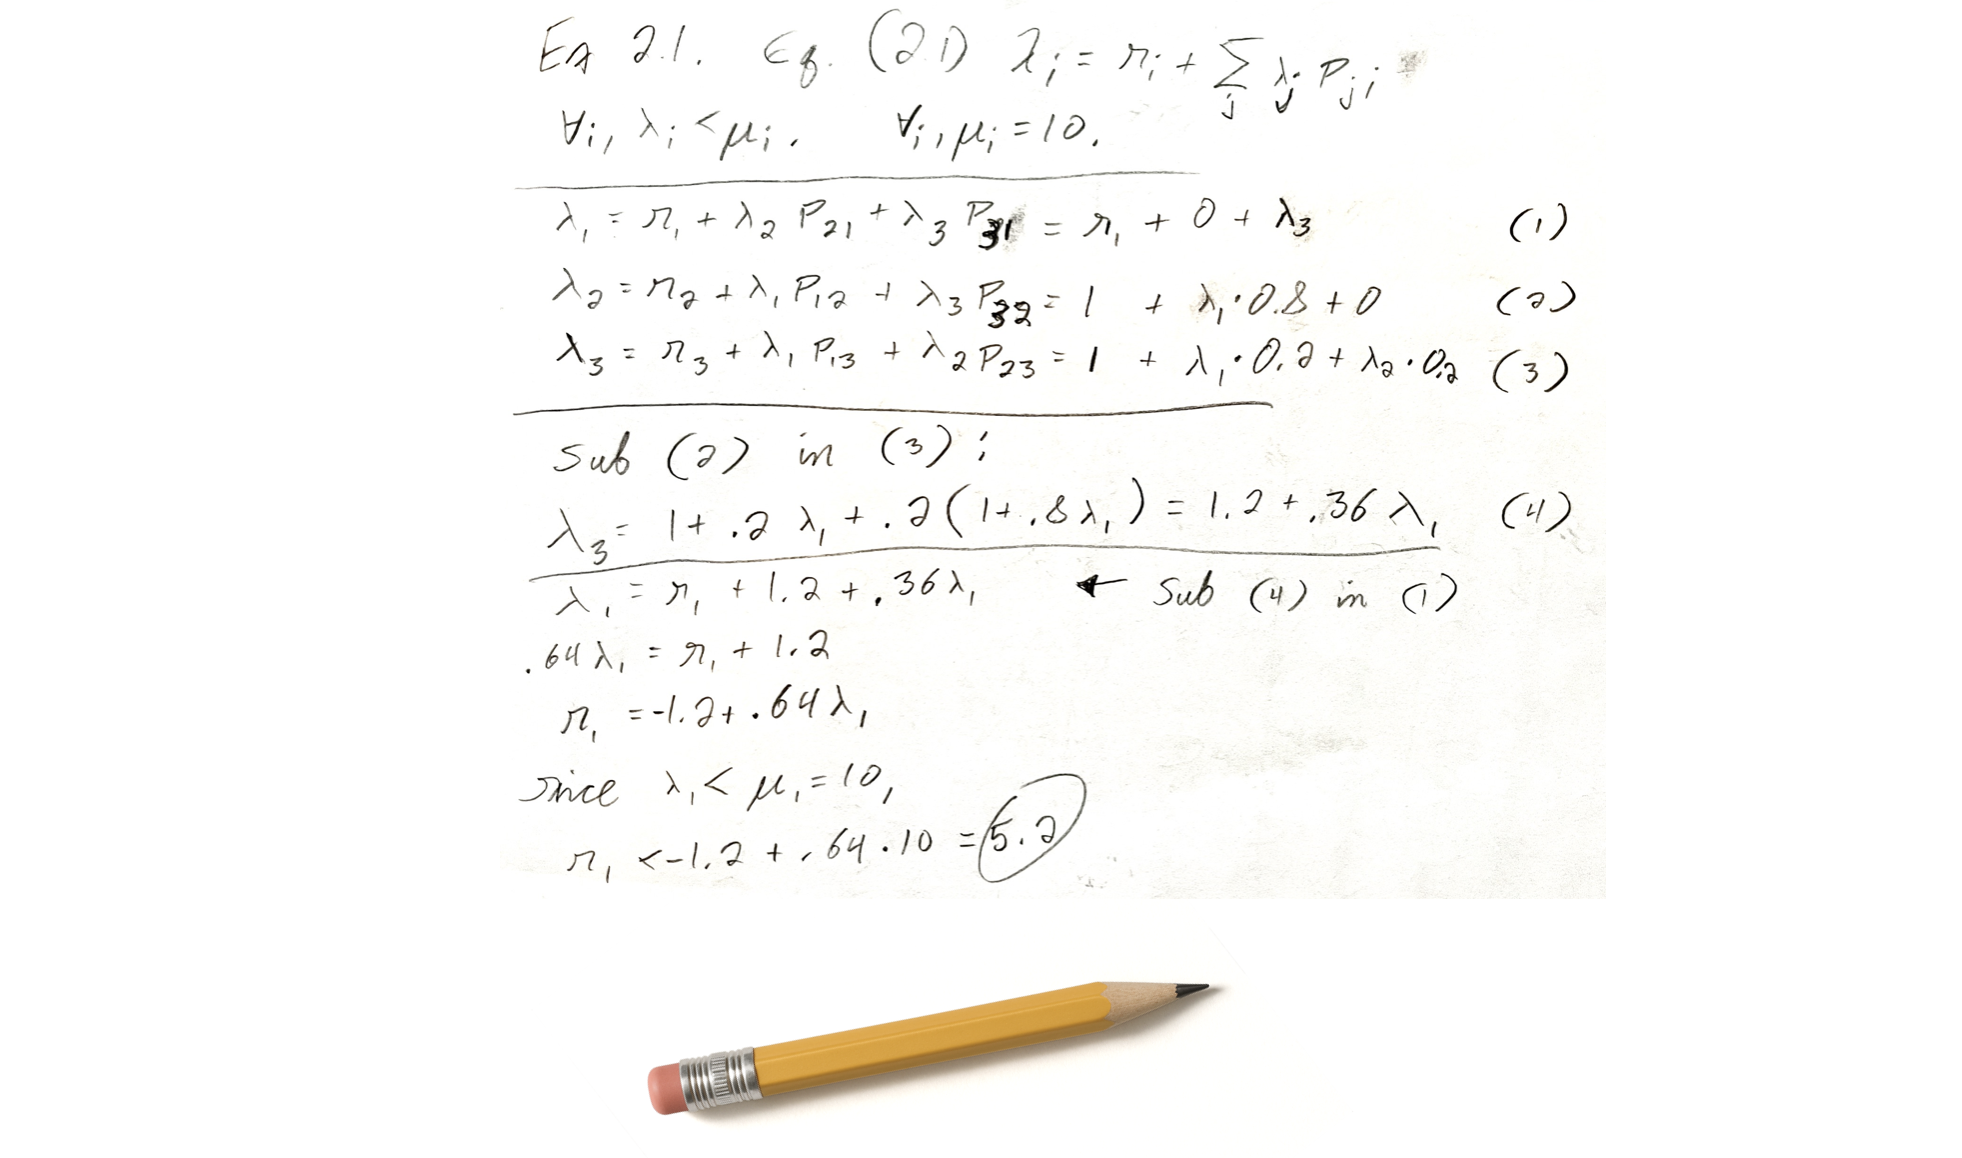 Ex 2.1. Eq. (2.1) λᵢ = rᵢ + Σⱼ λⱼ Pⱼᵢ
∀i, λᵢ < μᵢ. ∀i, μᵢ = 10.
λ₁ = r₁ + λ₂ P₂₁ + λ₃ P₃₁ = r₁ + 0 + λ₃ (1)
λ₂ = r₂ + λ₁ P₁₂ + λ₃ P₃₂ = 1 + λ₁·0.8 + 0 (2)
λ₃ = r₃ + λ₁ P₁₃ + λ₂ P₂₃ = 1 + λ₁·0.2 + λ₂·0.2 (3)
Sub (2) in (3):
λ₃ = 1 + .2 λ₁ + .2(1+.8λ₁) = 1.2 + .36 λ₁ (4)
λ₁ = r₁ + 1.2 + .36λ₁ ← Sub (4) in (1)
.64λ₁ = r₁ + 1.2
r₁ = -1.2 + .64λ₁
since λ₁ < μ₁ = 10,
r₁ < -1.2 + .64·10 = 5.2